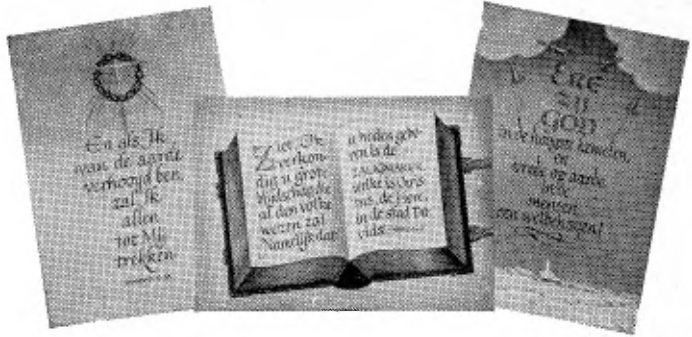 En als Ik
van de aarde
verhoogd ben,
zal Ik
allen
tot Mij
trekken
Ziet, Ik
verkon-
dig u grote
blijdschap, die
al den volke
wezen zal
Namelijk dat
u heden gebo-
ren is de
ZALIGMAKER,
welke is Chris-
tus, de Here,
in de stad Da-
vids.
ERE
ZIJ
GOD
in de hoogste hemelen,
en
vrede op aarde,
in de
mensen
een welbehagen!